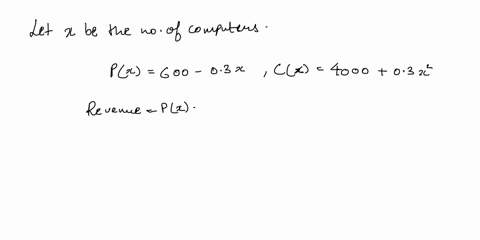 Let x be the no. of computers.
P(x) = 600 - 0.3x , C(x) = 4000 + 0.3x²
Revenue = P(x).